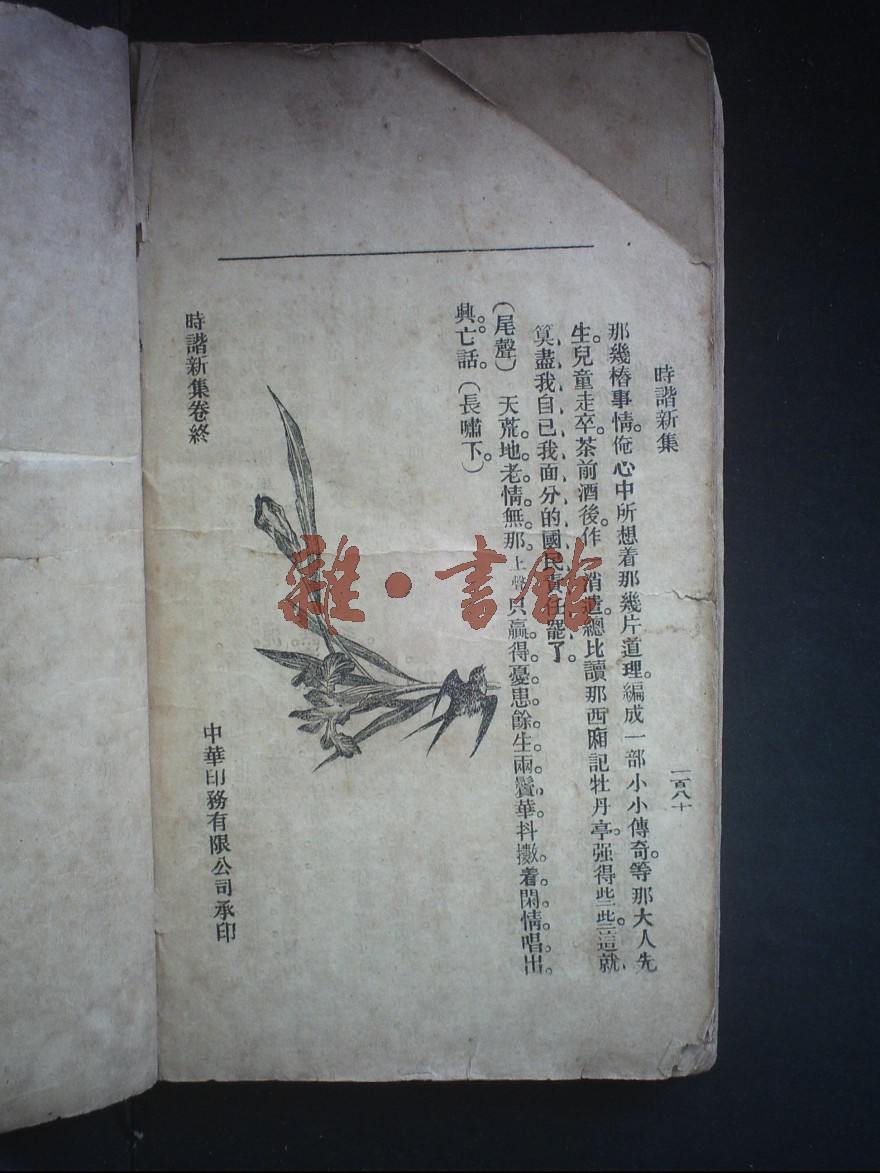 時諧新集
一百八十
那幾樁事情。俺心中所想着那幾片道理。編成一部小小傳奇。等那大人先
生。兒童走卒。茶前酒後。作消遣。總比讀那西廂記牡丹亭。强得些些。這就
算盡我自已我面分的國民責任罷了。
(尾聲) 天荒地老情無那上聲只贏得憂患餘生兩鬢華抖擻着閑情唱出
興亡話。(長嘯下。)
時諧新集卷終
中華印務有限公司承印
雜·書館